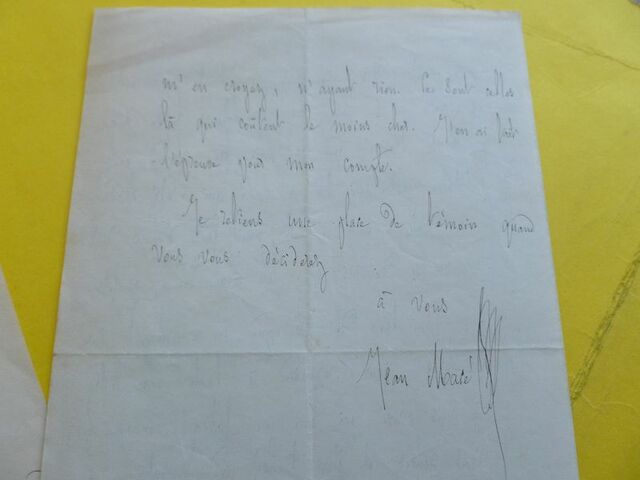 m'en croyez, n'ayant rien. Ce sont celles
là qui coûtent le moins cher. J'en ai fait
l'épreuve pour mon compte.
Je retiens une place de témoin quand
vous vous déciderez
à vous
Jean Macé